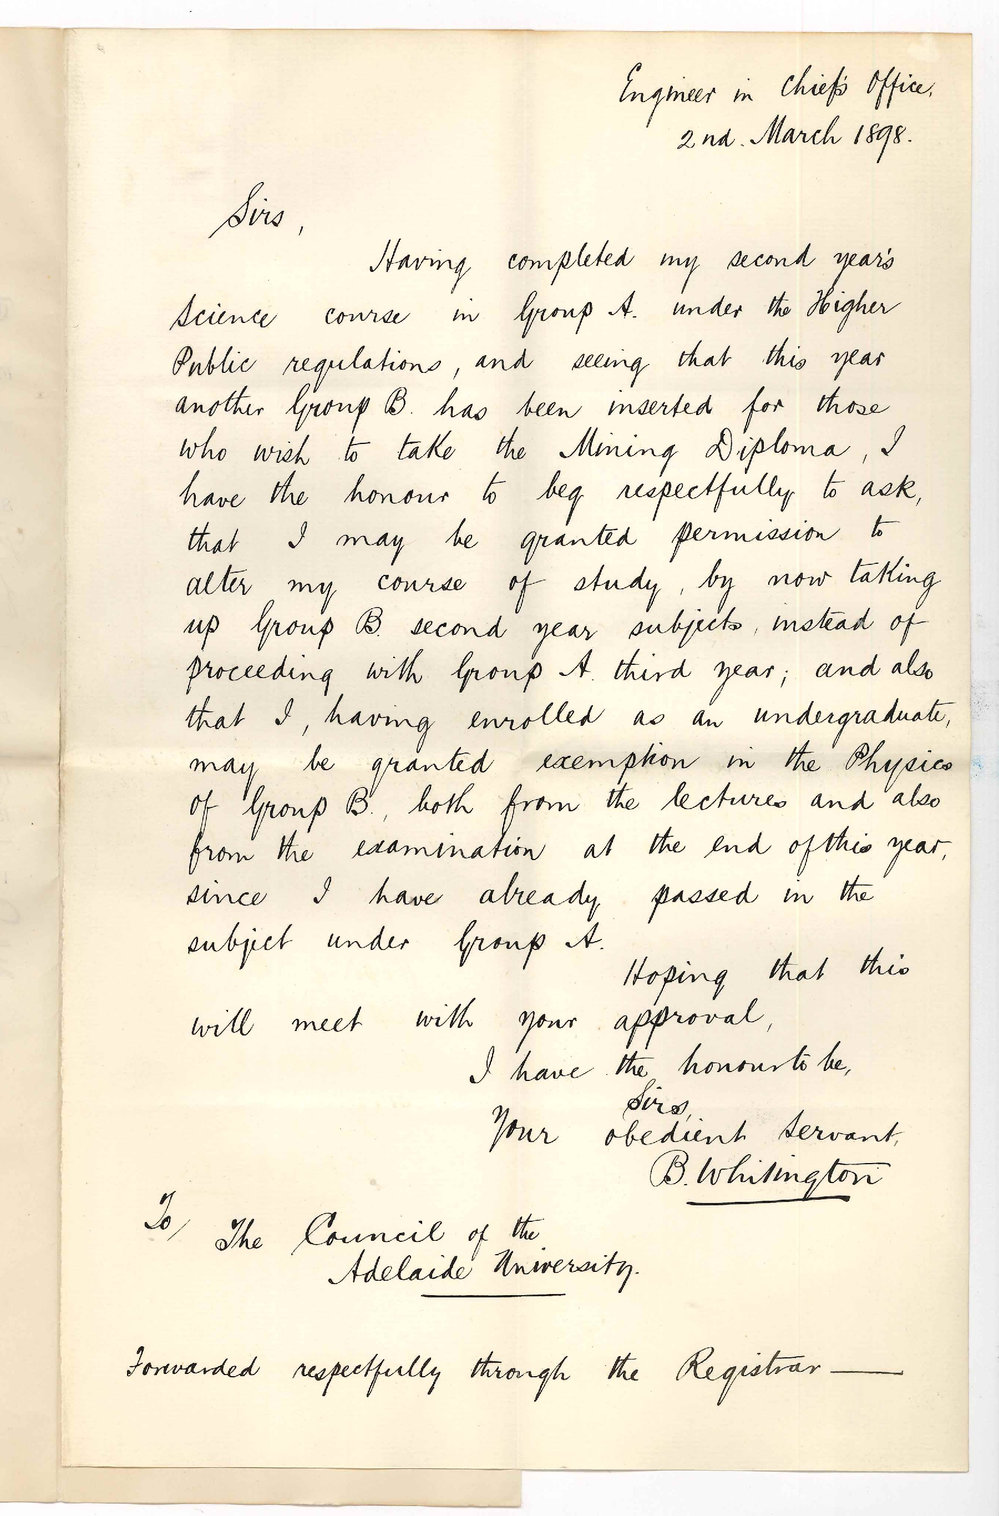 Engineer in Chief's Office.
2nd. March 1898.
Sirs,
Having completed my second year's
Science course in Group A. under the Higher
Public regulations, and seeing that this year
another Group B. has been inserted for those
who wish to take the Mining Diploma, I
have the honour to beg respectfully to ask,
that I may be granted permission to
alter my course of study, by now taking
up Group B. second year subjects, instead of
proceeding with Group A. third year; and also
that I, having enrolled as an undergraduate,
may be granted exemption in the Physics
of Group B., both from the lectures and also
from the examination at the end of this year,
since I have already passed in the
subject under Group A.
Hoping that this
will meet with your approval,
I have the honour to be,
Sirs,
Your obedient servant,
B. Whitington
To/ The Council of the
Adelaide University.
Forwarded respectfully through the Registrar —